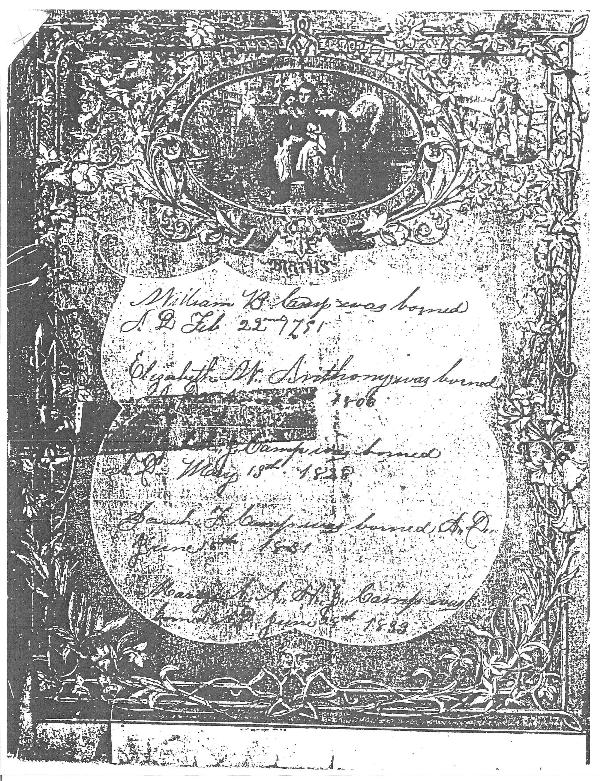 BIRTHS
William B. Camp was borned
A D Feb 22nd 1781
Elizabeth W. Anthony was borned
1806
J. Camp was borned
A D May 13th 1828
Sarah F. Camp was borned A. D.
June 8th 1831
A. H. J. Camp was
borned A D. June 29th 1833